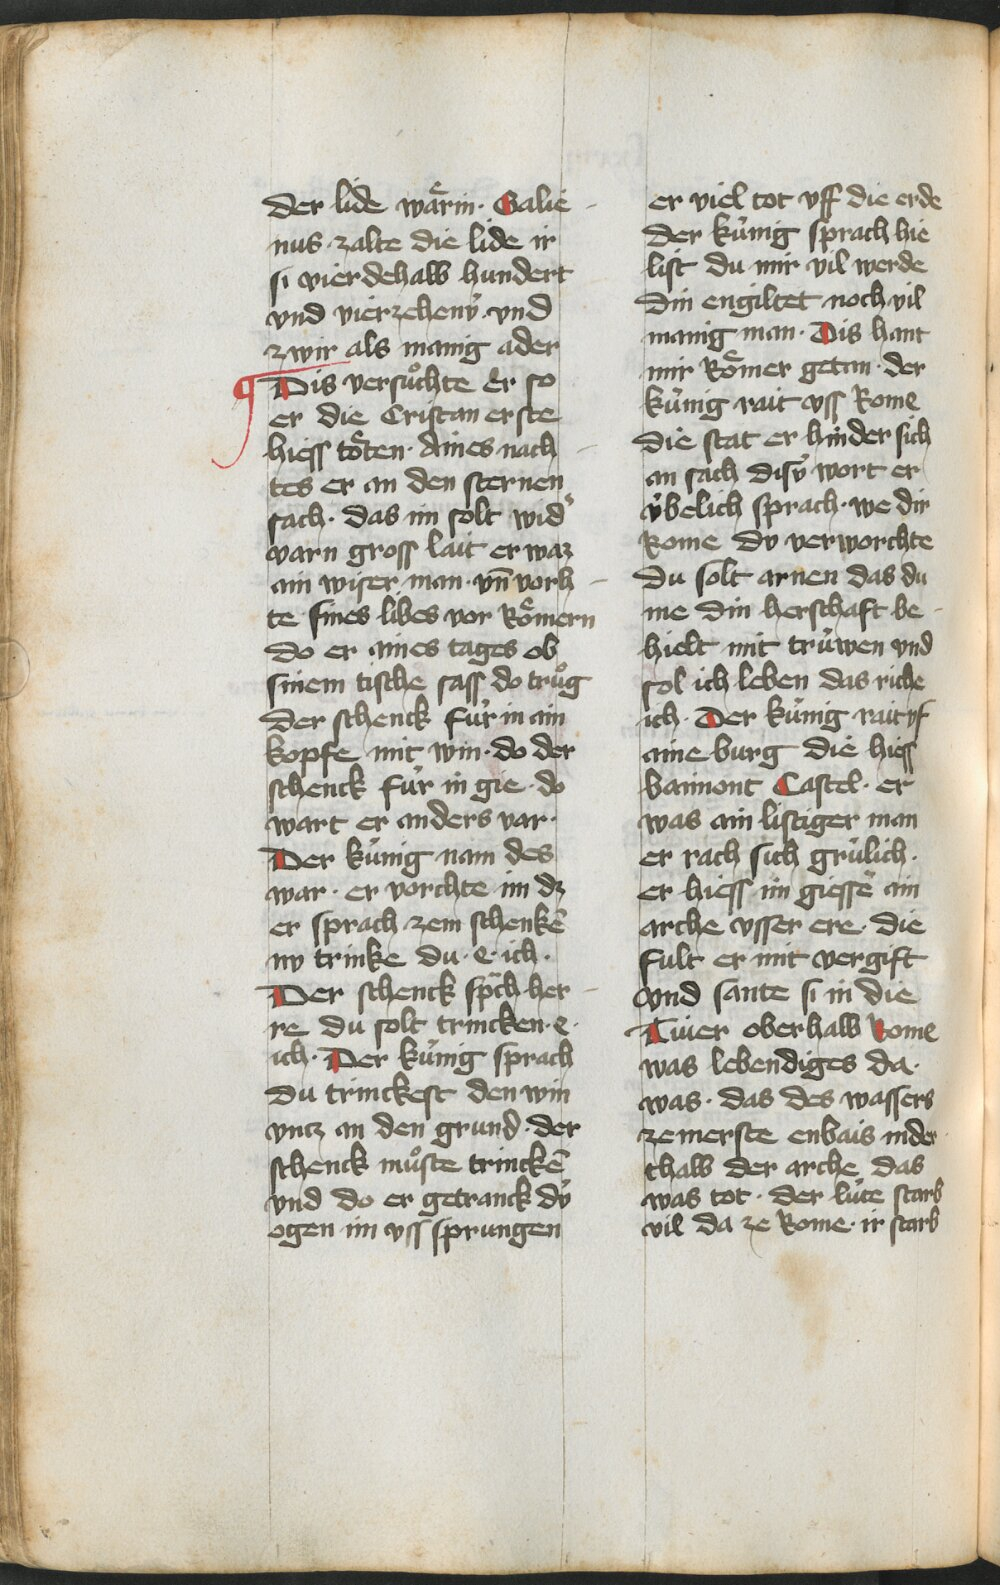 der lide wa&#x364;rin· Galie-
nus zalte die lide ir
si vierdehalb hundert
vnd vierzehenv́· vnd
zwir als manig ader
Dis versůchte Er so
er die Cristan erste
hiess tôten· Aines nach-
tes er an den sternen
sach· das im solt wid͛
varn gross lait er waz
ain wiser man· vn̄ vorh-
te sines libes vor Rômern
do er aines tages ob
sinem tische sass do trůg
der schenck fúr in ain
kopfe mit win· do der
schenck fúr in gie· do
wart er anders var·
Der kúnig nam des
war· er vorchte im dz
er sprach zem schenkē
nv trinke du· e· ich·
Der schenck sp̄ch her-
re du solt trincken· e·
ich· Der kúnig sprach
du trinckest den win
vncz an den grund· der
schenck můste trinckē
vnd do er getranck dv́
ogen im vss sprungen
er viel tot vff die erde
der kúnig sprach hie
list du mir vil werde
din engiltet noch vil
manig man· Dis hant
mir Rômer getan· der
kúnig rait vss Rome
die stat er hinder sich
an sach disv́ wort er
v́belich sprach· we dir
Rome dv verworchte
du solt arnen das du
nie din herschaft be-
hielt mit trúwen vnd
sol ich leben das riche
ich· Der kúnig rait vf
aine burg die hiess
baimont Castel· er
was ain listiger man
er rach sich grúlich·
er hiess im giessē ain
arche vsser ere· die
fult er mit vergift
vnd sante si in die
Tiuer oberhalb Rome
was lebendiges da·
was· das des wassers
zemerste enbais inder
thalb der arche das
was tot· der lúte starb
vil da ze Rome· ir starb